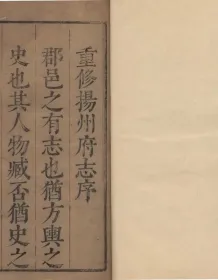 重修揚州府志序
郡邑之有志也猶方輿之
史也其人物臧否猶史之